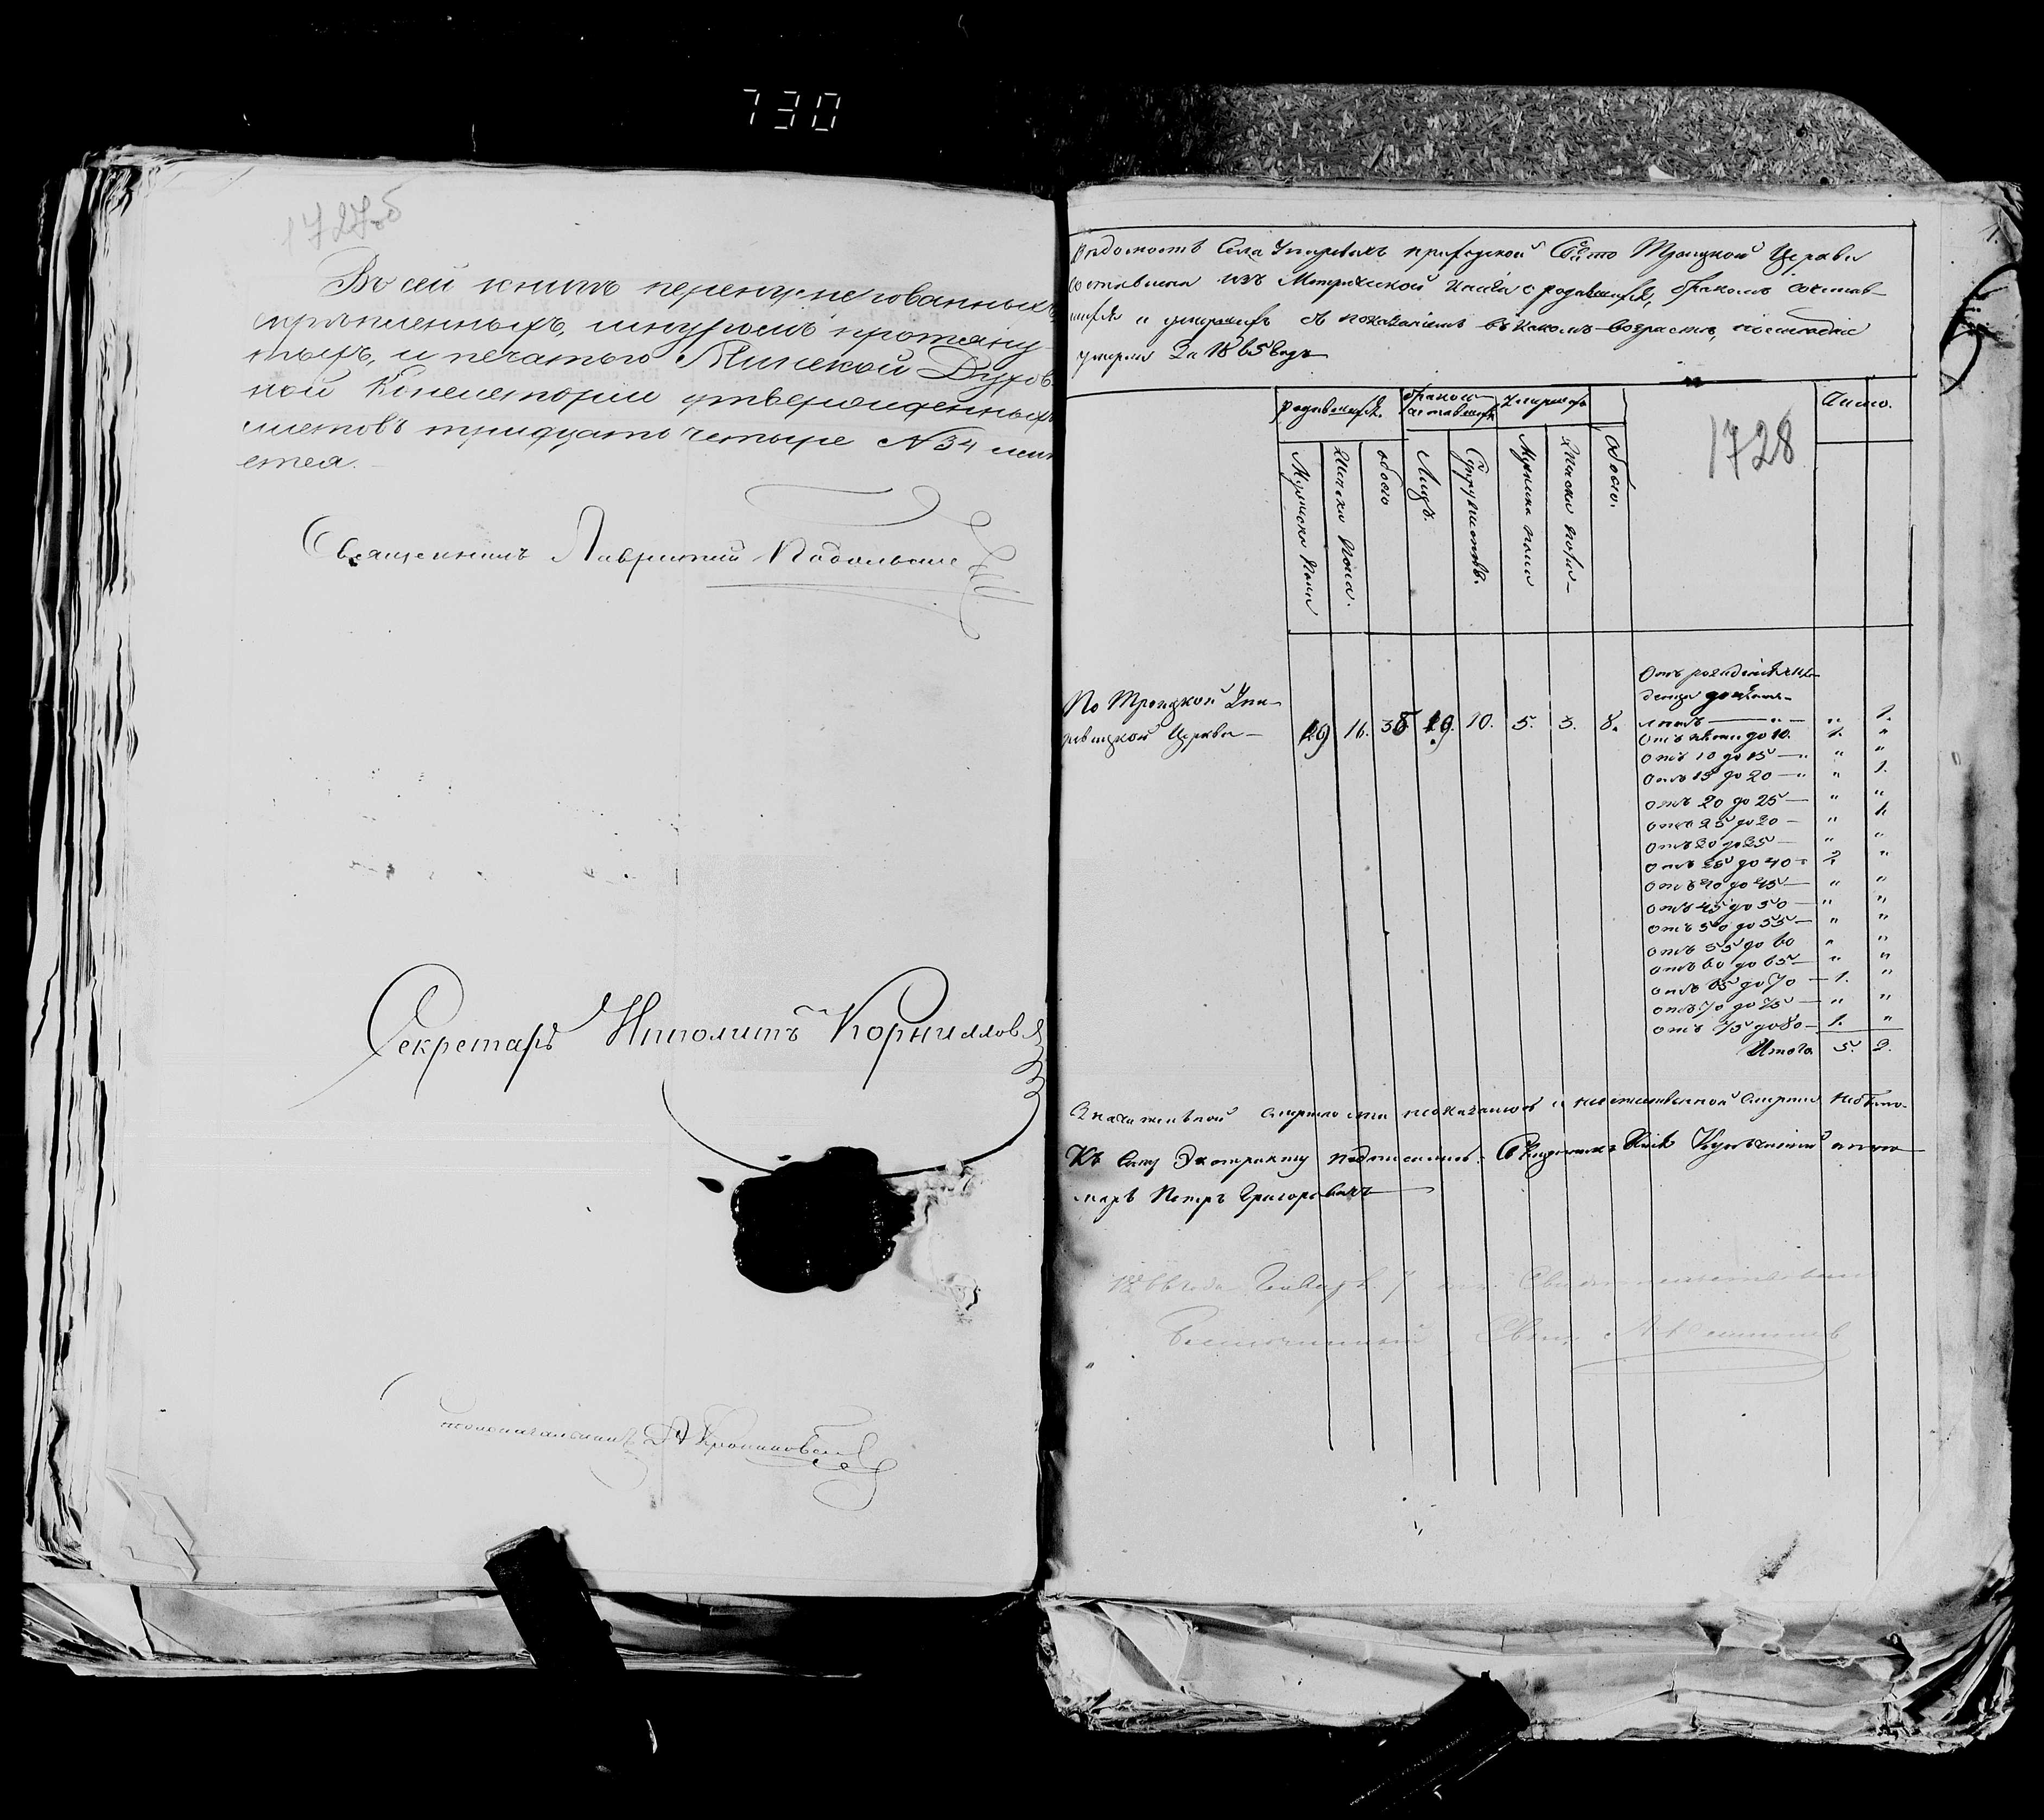 730
1727об
Въ сей книгѣ перенумерованныхъ,
скрѣпленныхъ, шнуромъ протяну-
тыхъ, и печатью Минской Духов-
ной Консисторіи утвержденныхъ
листовъ тридцать четыре №34 лист
ется.
Священникъ Лаврентій Подольскій
Секретарь Иполитъ Корниллов
Столоначальникъ
1.
Вѣдомость Села приходской Свято Троицкой Церкви
составлена изъ Метрической книги о родившихся, бракомъ сочетав-
шихся и умершихъ съ показаніемъ въ какомъ возрастѣ, послѣдніе
умерли За 1865 Годъ
родившихся. Бракомъ сочетавшихся Умершихъ Число.
Мужеска пола
Женска пола.
обоего
Лицъ.
Супружествъ.
Мужеска пола
Женска пола
Обоего.
1728
По Троицкой
Церкви 19 16. 35 19. 10. 5. 3. 8.
Отъ рожденія
лѣтъ — " — " 1.
Отъ пяти до 10. 1. "
Отъ 10 до 15 — " "
Отъ 15 до 20 — " 1.
Отъ 20 до 25 — " "
Отъ 25 до 20 — " 1.
Отъ 20 до 25 — " "
Отъ 25 до 40 - 2. "
Отъ 40 до 45 — " "
Отъ 45 до 50 — " "
Отъ 50 до 55 — " "
Отъ 55 до 60 " "
Отъ 60 до 65 — " "
Отъ 65 до 70 — 1. "
Отъ 70 до 75 — " "
Отъ 75 до 80 — 1. "
Итого 5. 3.
смертности не оказалось и неестественной смерти небыло.
Къ сему Экстракту подписались. Священникъ поно-
марь Петръ Григоровичъ
1866 года Января 7 дня Свидѣтельствовалъ
Благочинный Свящ.